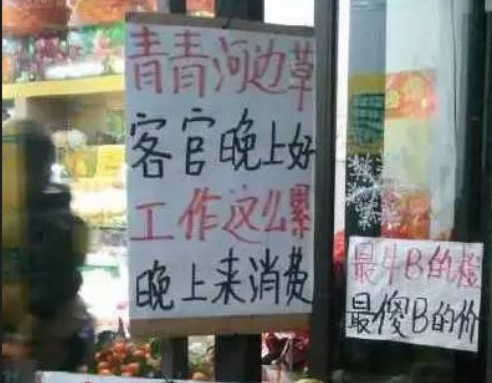 青青河边草
客官晚上好
工作这么累
晚上来消费
最牛B的橙
最傻B的价